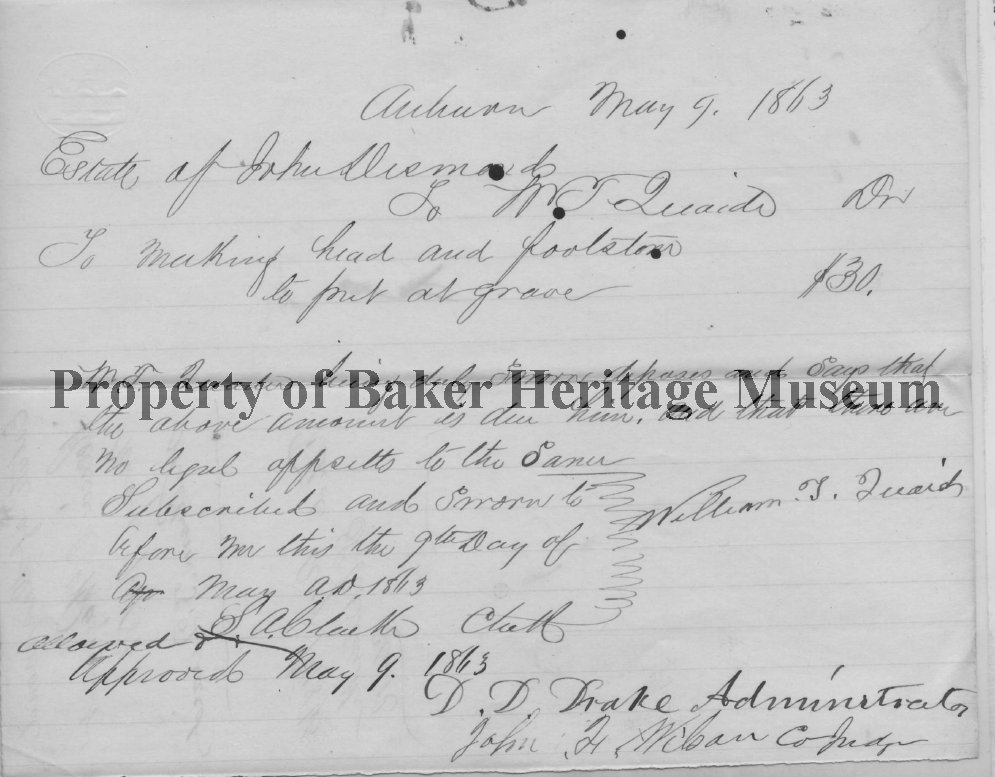 Auburn May 9. 1863
Estate of John Dismond
To W T Quaid Dr
To making head and footstone
to put at grave $30.
W. T. Quaid being duly Sworn deposes and Says that
Property of Baker Heritage Museum
the above amount is due him. and that there are
no legal offsetts to the Same
Subscribed and Sworn to
before me this the 9th Day of
William T. Quaid
May AD, 1863
S. A. Clarke Clerk
allowed &
Approved May 9. 1863
D. D Drake Administrator
John H. Wilson Co Judge